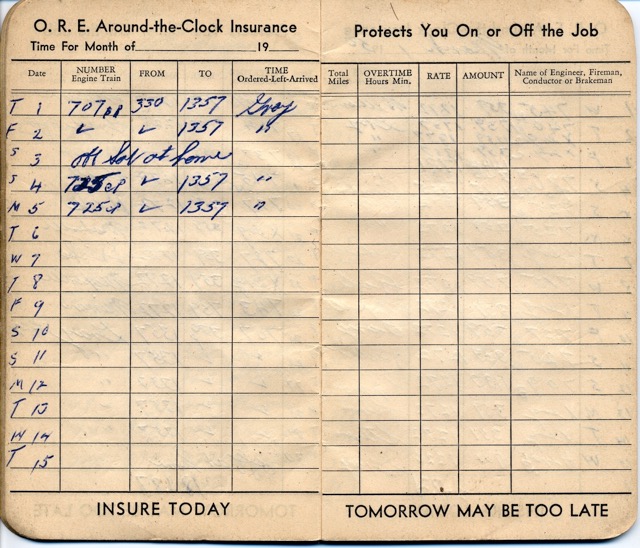 O. R. E. Around-the-Clock Insurance
Time For Month of 19
Date NUMBER Engine Train FROM TO TIME Ordered-Left-Arrived
T 1 707 330 1357 Gray
F 2 ✓ ✓ 1357 "
S 3 off Sat at home
S 4 725 ✓ 1357 "
M 5 725 ✓ 1357 "
T 6
W 7
T 8
F 9
S 10
S 11
M 12
T 13
W 14
T 15
INSURE TODAY
Protects You On or Off the Job
Total Miles OVERTIME Hours Min. RATE AMOUNT Name of Engineer, Fireman, Conductor or Brakeman
TOMORROW MAY BE TOO LATE